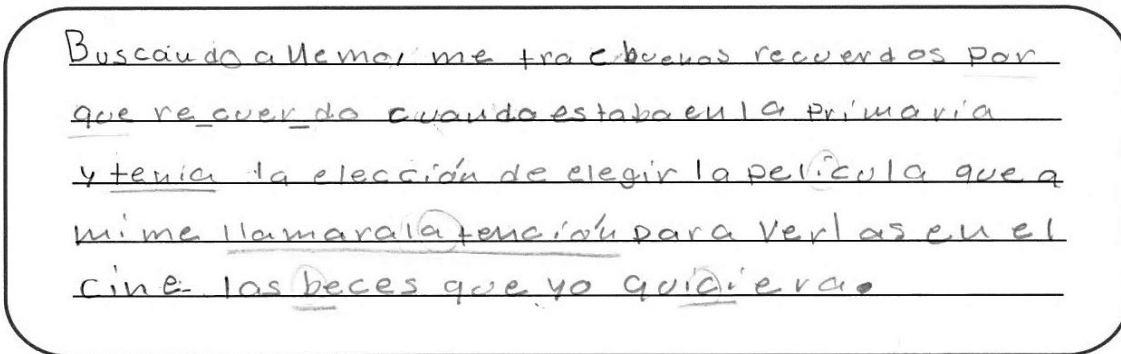 Buscando a Nemo, me trae buenos recuerdos por
que re_cuer_do cuando estaba en la primaria
y tenia la elección de elegir la pelicula que a
mi me llamara la tención para verlas en el
cine las beces que yo quiciera.